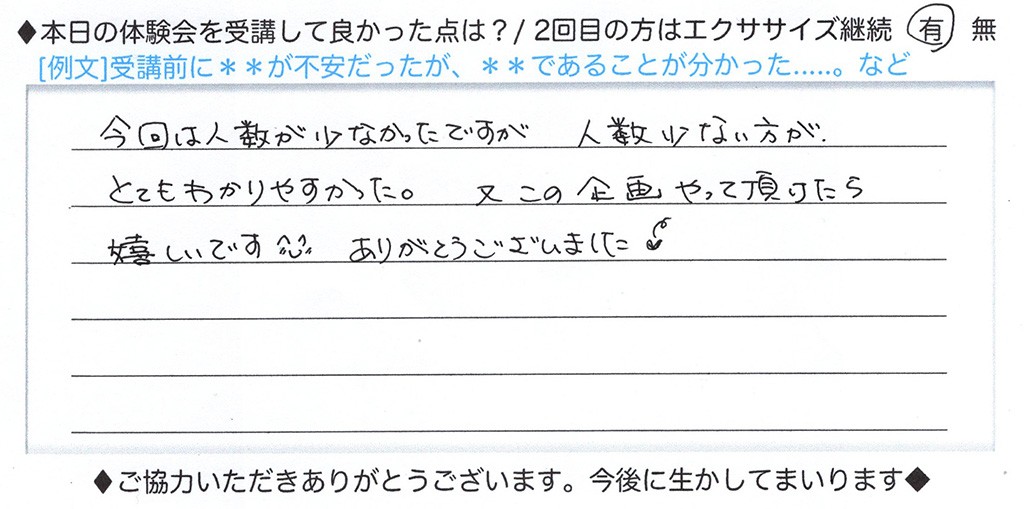 ◆本日の体験会を受講して良かった点は？/ 2回目の方はエクササイズ継続 有 無
[例文]受講前に＊＊が不安だったが、＊＊であることが分かった.....。など
今回は人数が少なかったですが 人数少ない方が、
とてもわかりやすかった。 又この企画やって頂けたら
嬉しいです^^ ありがとうございました
◆ご協力いただきありがとうございます。今後に生かしてまいります◆